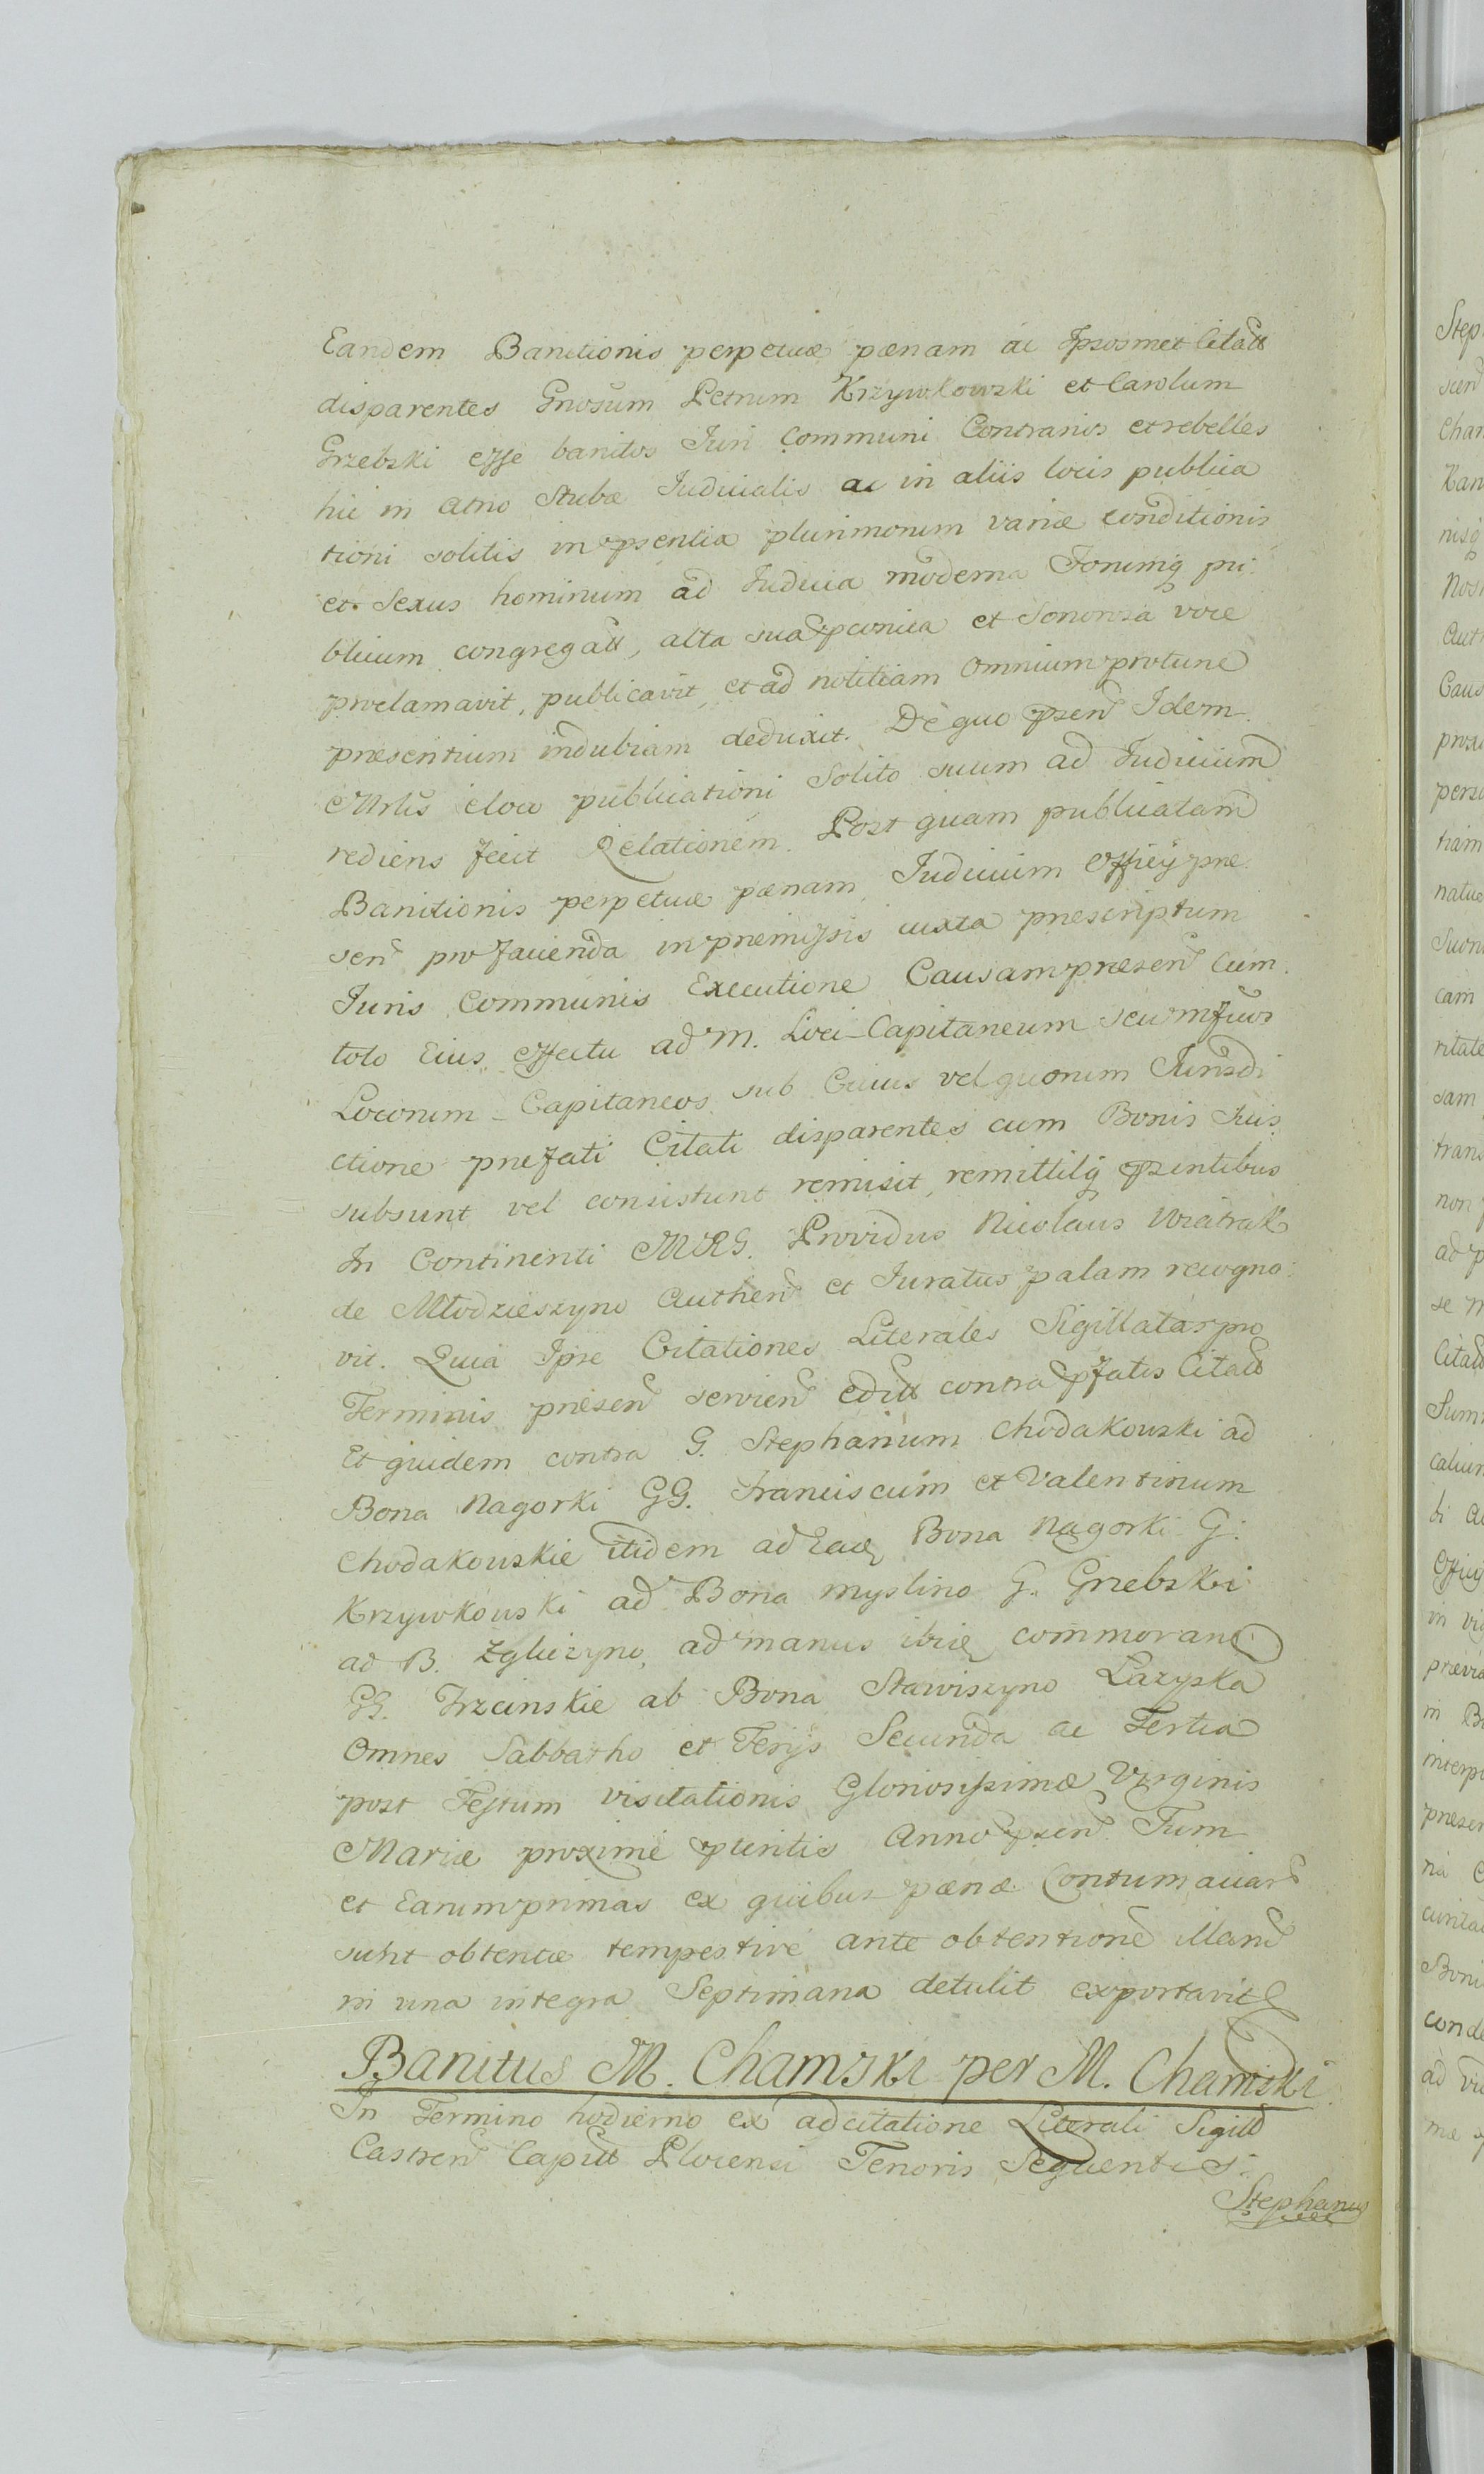 Eandem Banitionis perpetuæ pænam ac Ipsosmet Citatt
disparentes Gnosum Petrum Krzywkowski et Carolum
Grzebski esse banitos Iuri Communi Contrarios et rebelles
hic in atrio Stubæ Iudicialis ac in aliis locis publica
tioni solitis in psentia plurimorum variæ conditionis
et Sexus hominum ad Iudicia moderna Forumq pu
blicum congregatt, alta sua pconica et Sonorosa voce
proclamavit, publicavit, et ad notitiam Omnium protunc
præsentium indubiam deduxit. De quo psen Idem
Mrlis eloco publicationi Solito suum ad Iudicium
rediens fecit Relationem. Post quam publicatam
Banitionis perpetuæ pænam Iudicium Officÿ præ
sen pro facienda in præmissis iuxta præscriptum
Iuris Communis Executione Causam præsen cum
toto Eius effectu ad M. Loci Capitaneum seu
Locorum Capitaneos sub Cuius vel quorum Iurisdi
ctione præfati Citati disparentes cum Bonis suis
subsunt vel consistunt remisit, remittitq psentibus
In Continenti MRG. Providus Nicolaus Wiatrak
de Młodzieszyno Authen et Iuratus palam recogno
vit. Quia Ipse Citationes Literales Sigillatas pro
Terminis præsen servien editt contra pfatos Citatt
Et quidem contra G. Stephanum Chodakowski ad
Bona Nagorki GG. Franciscum et Valentinum
Chodakowskie itidem ad Eadq Bona Nagorki G.
Krzywkowski ad Bona Myslino G. Grzebski
ad B. Zglićzyno, ad manus ibiq commoran
GG. Trzcinskie ab Bona Stawiszyno Lazyska
Omnes Sabbatho et Ferÿs Secunda ac Tertia
post Festum visitationis Gloriosissimæ Virginis
Mariæ proxime pteritis Anno psen Tum
et Earum primas ex quibus pænæ Contumaciar
sunt obtentæ tempestive ante obtentione illarum
in una integra Septimana detulit exportavit
Banitus M. Chamski per M. Chamski
In Termino hodierno ex adcitatione Literali Sigill
Castren Capitt Plocensi Tenoris Sequentis.
Stephanus